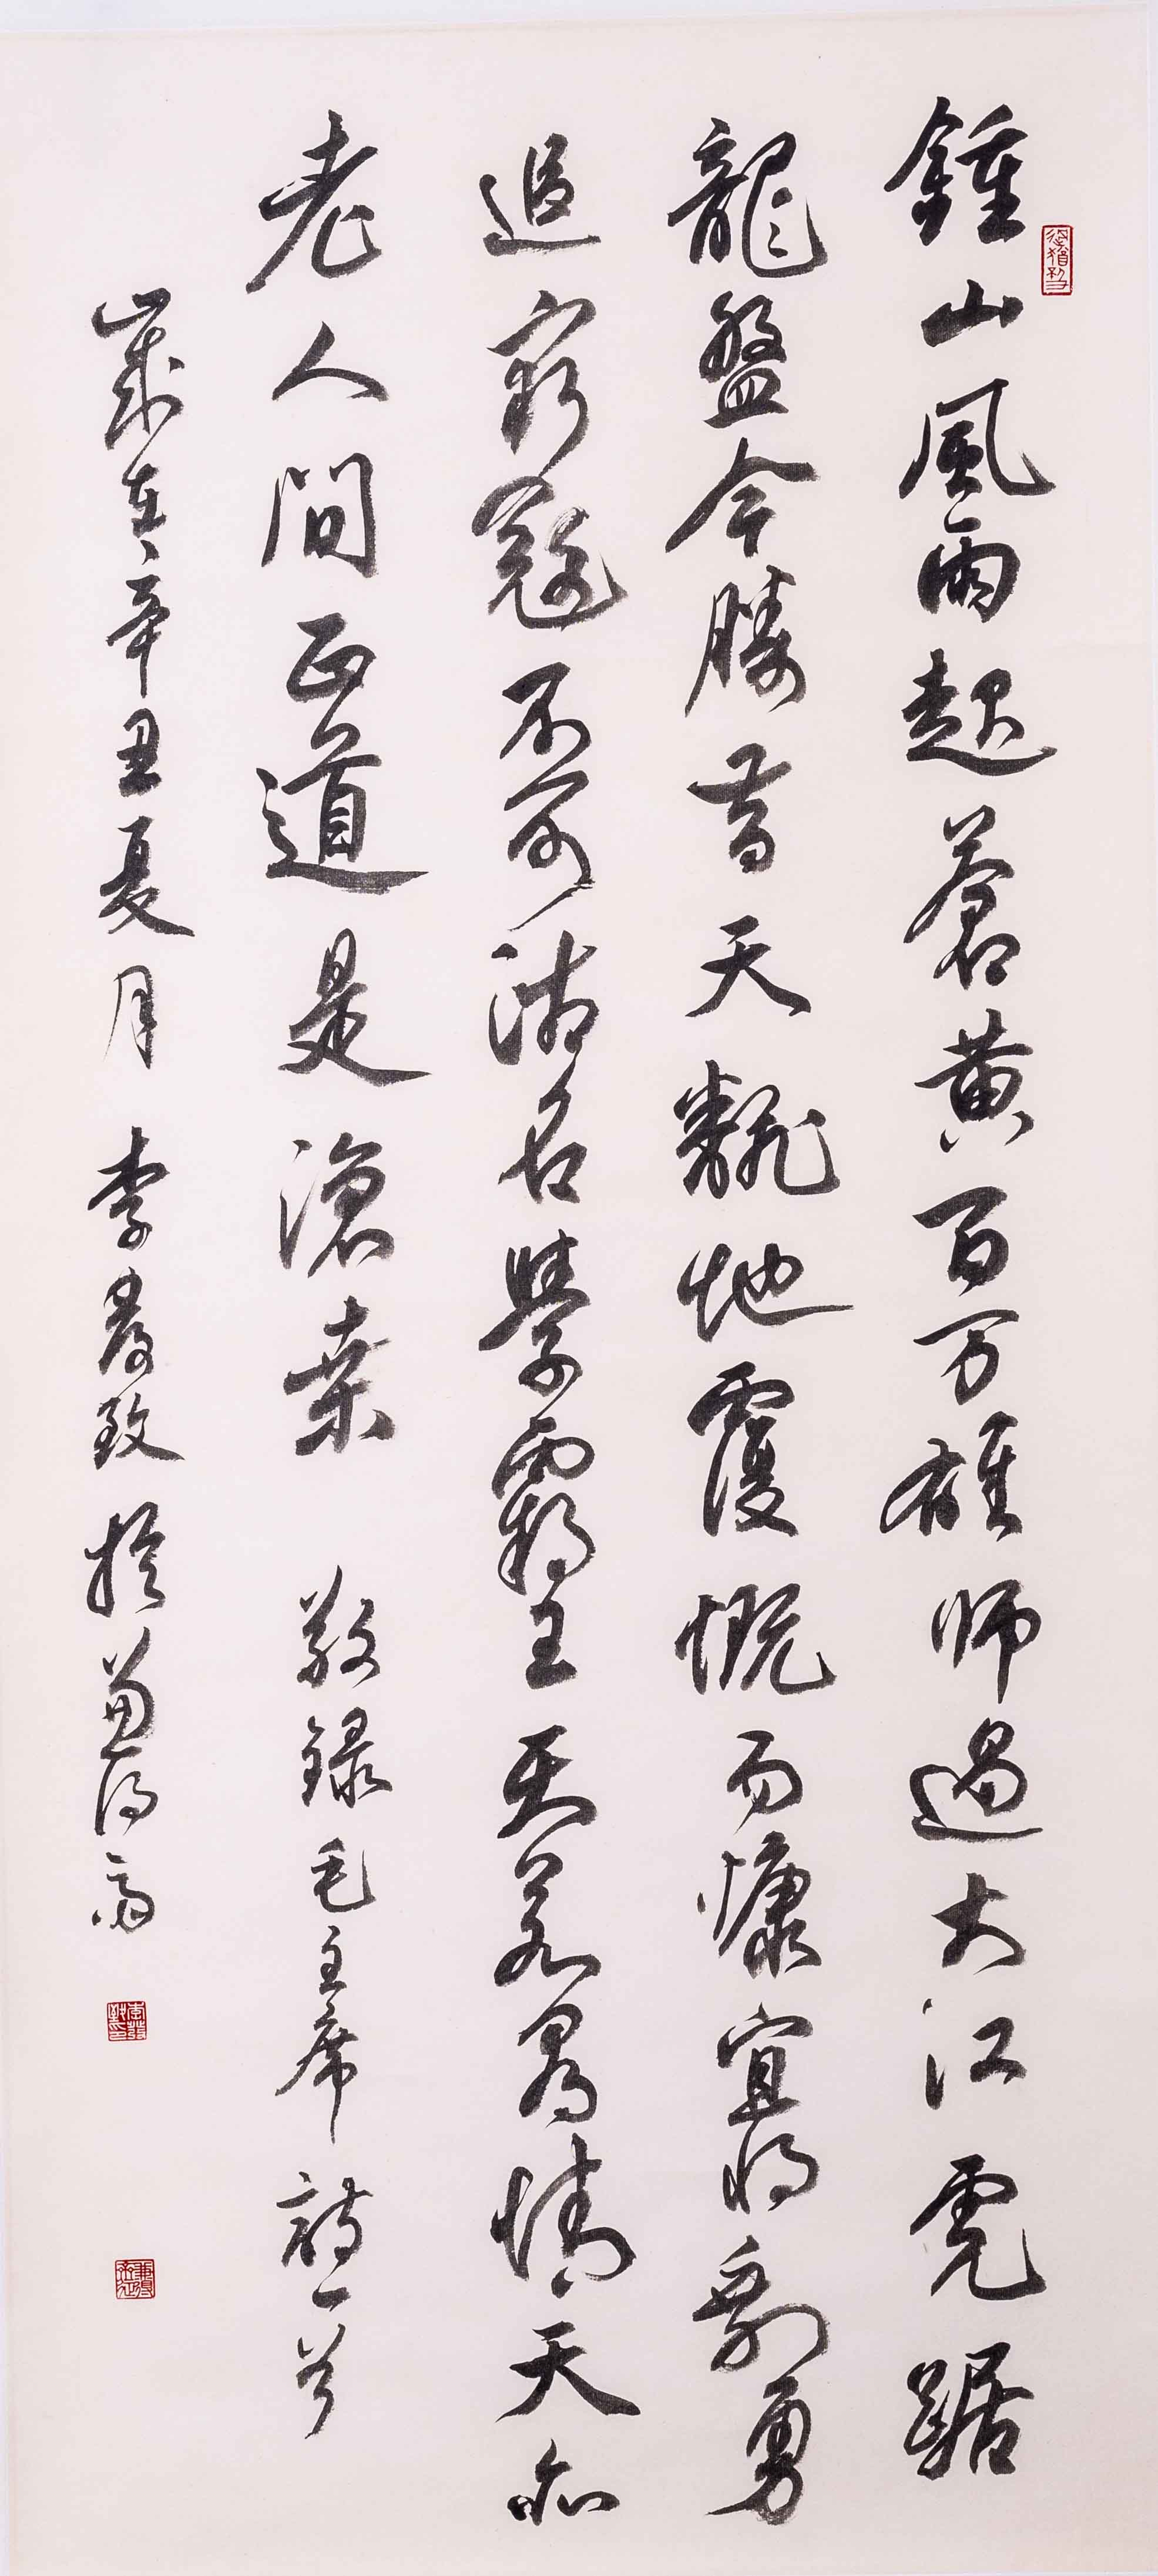 鍾山風雨起蒼黃百万雄師過大江虎踞
龍盤今勝昔天飜地覆慨而慷宜將剩勇
追窮寇不可沽名學霸王天若有情天亦
老人間正道是滄桒 敬錄毛主席詩一首
歲在辛丑夏月 李發致於兼得齋